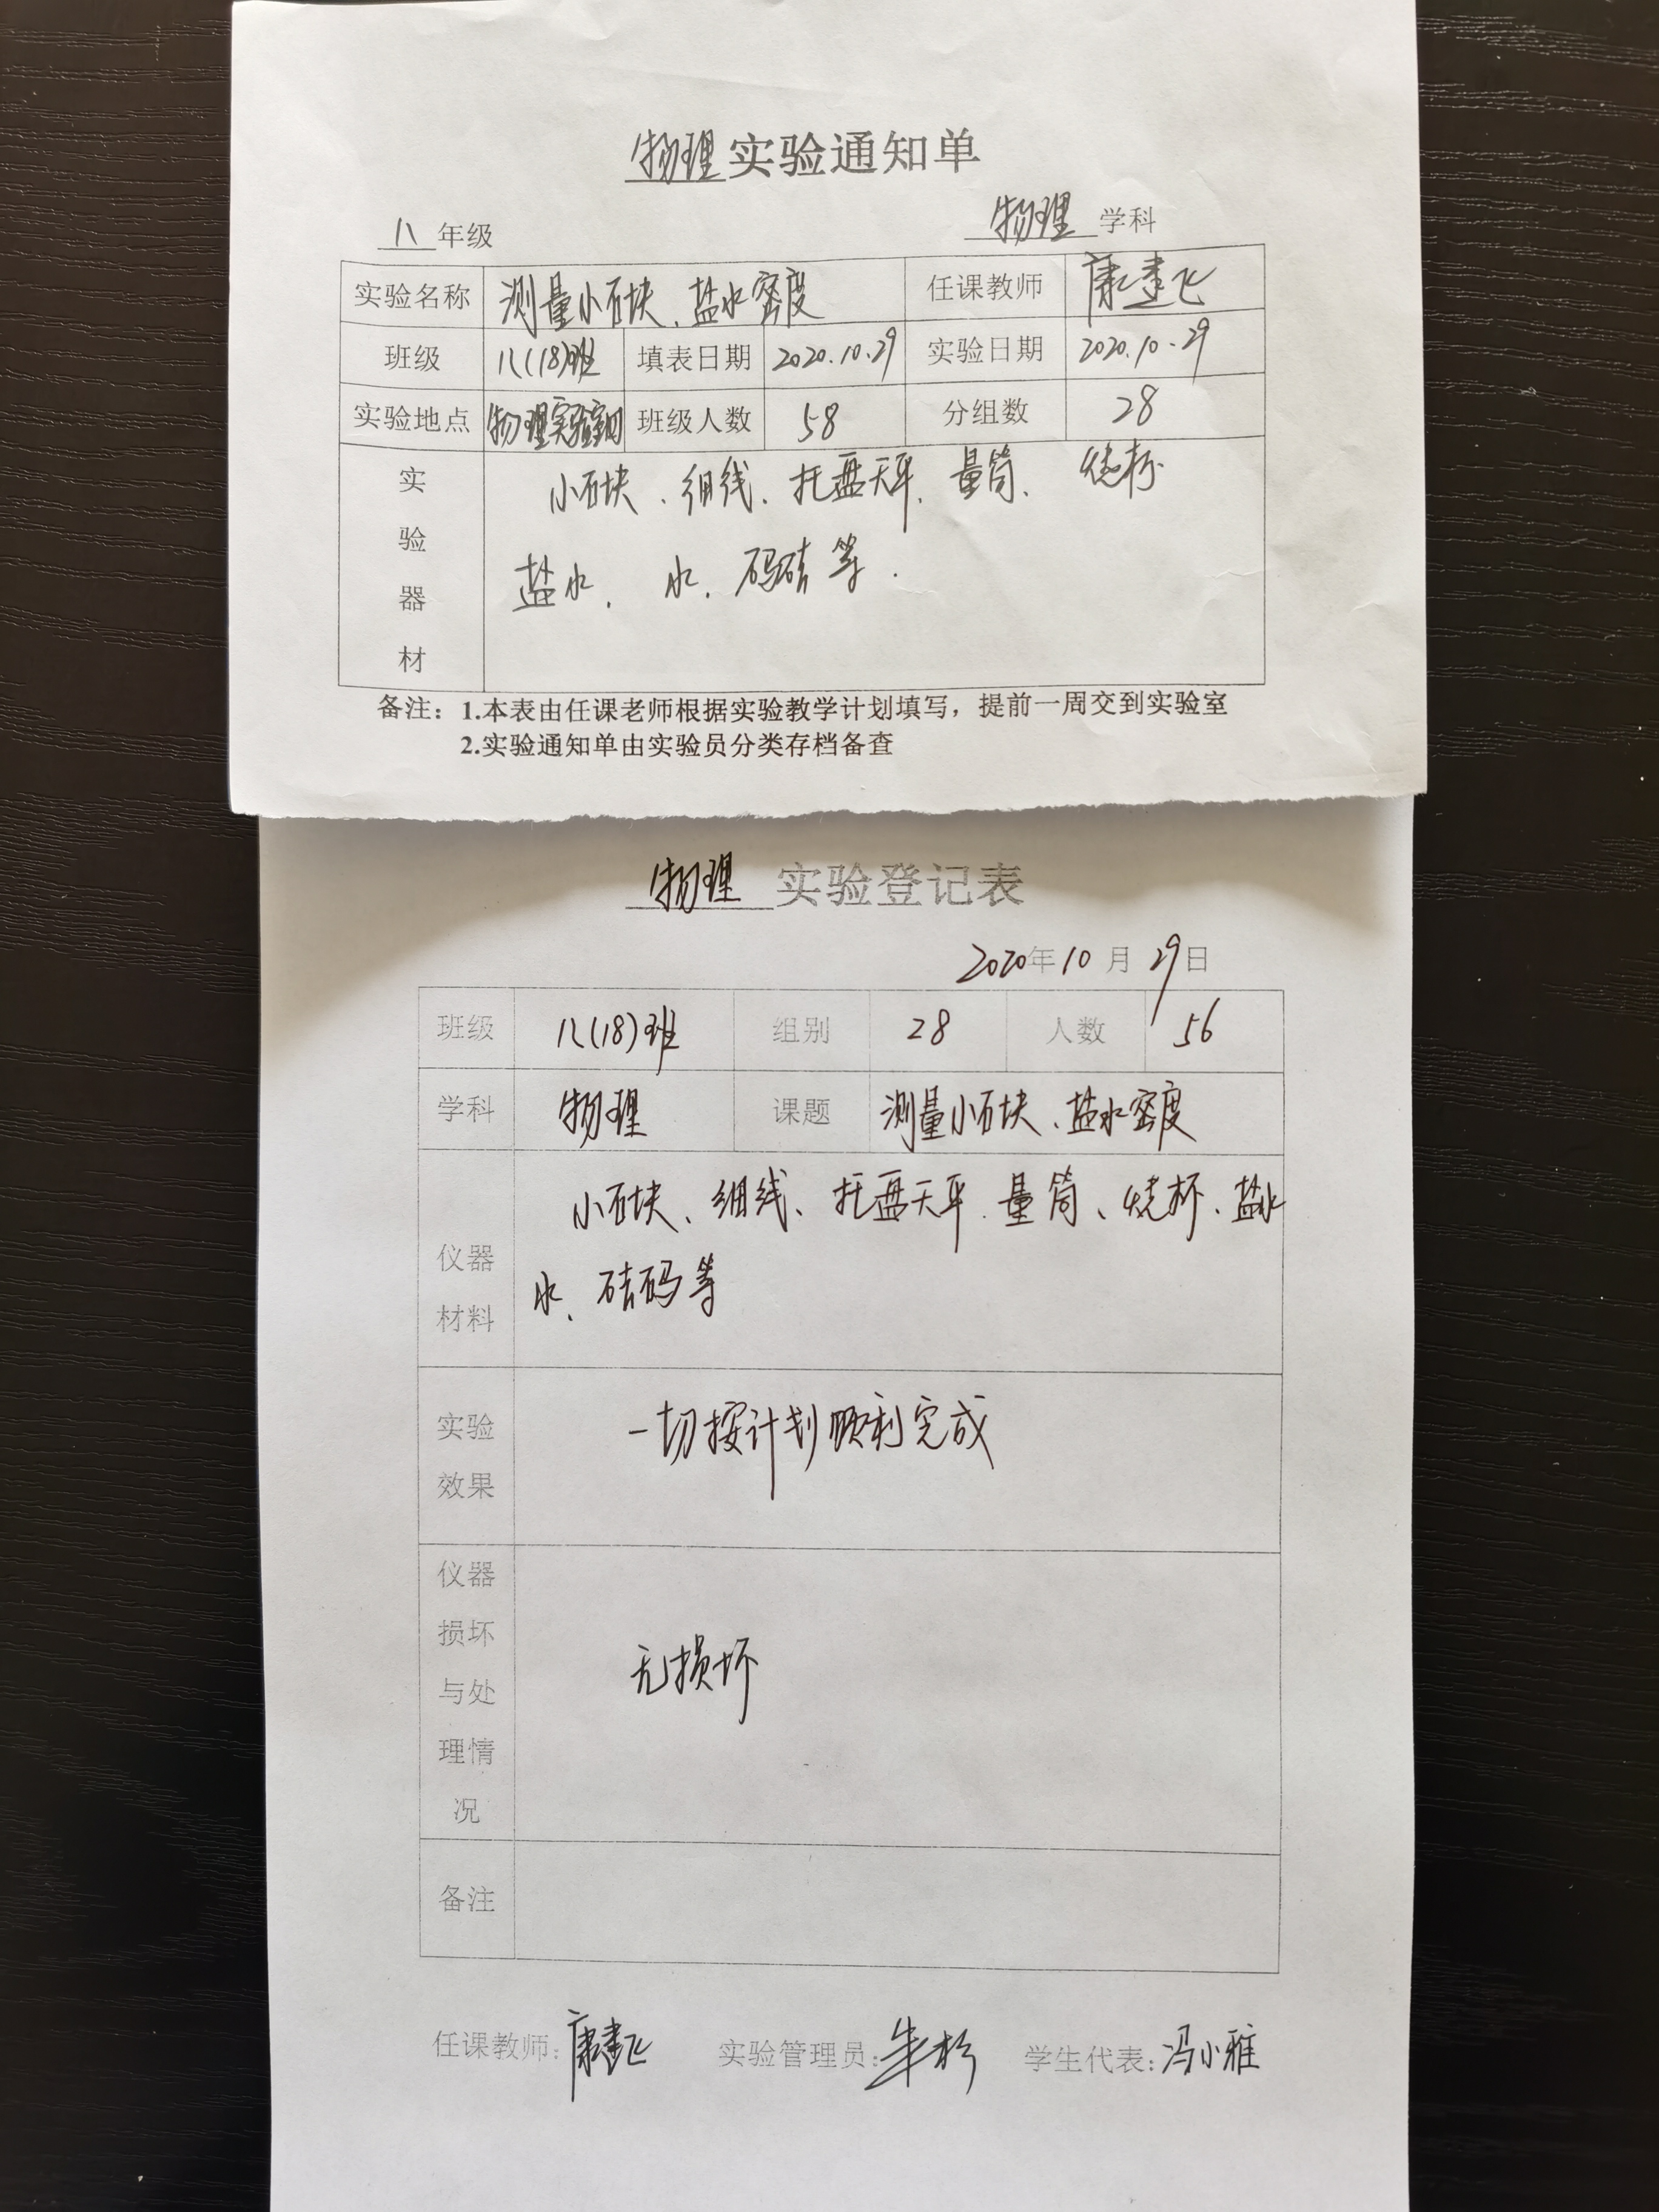 物理实验通知单
八年级 物理学科
实验名称 测量小石块、盐水密度 任课教师 康建飞
班级 八(18)班 填表日期 2020.10.29 实验日期 2020.10.29
实验地点 物理实验室 班级人数 58 分组数 28
实验器材 小石块、细线、托盘天平、量筒、烧杯
盐水、水、码砝等.
备注：1.本表由任课老师根据实验教学计划填写，提前一周交到实验室
2.实验通知单由实验员分类存档备查
物理 实验登记表
2020年10月29日
班级 八(18)班 组别 28 人数 56
学科 物理 课题 测量小石块、盐水密度
仪器材料 小石块、细线、托盘天平、量筒、烧杯、盐水
水、砝码等
实验效果 一切按计划顺利完成
仪器损坏与处理情况 无损坏
备注
任课教师：康建飞 实验管理员：朱杉 学生代表：冯小雅